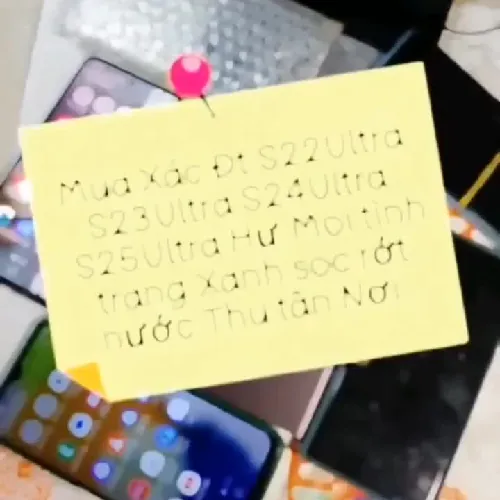 Mua Xác Đt S22Ultra
S23Ultra S24Ultra
S25Ultra Hư Mọi tình
trạng Xanh sọc rớt
nước Thu tân Nơi